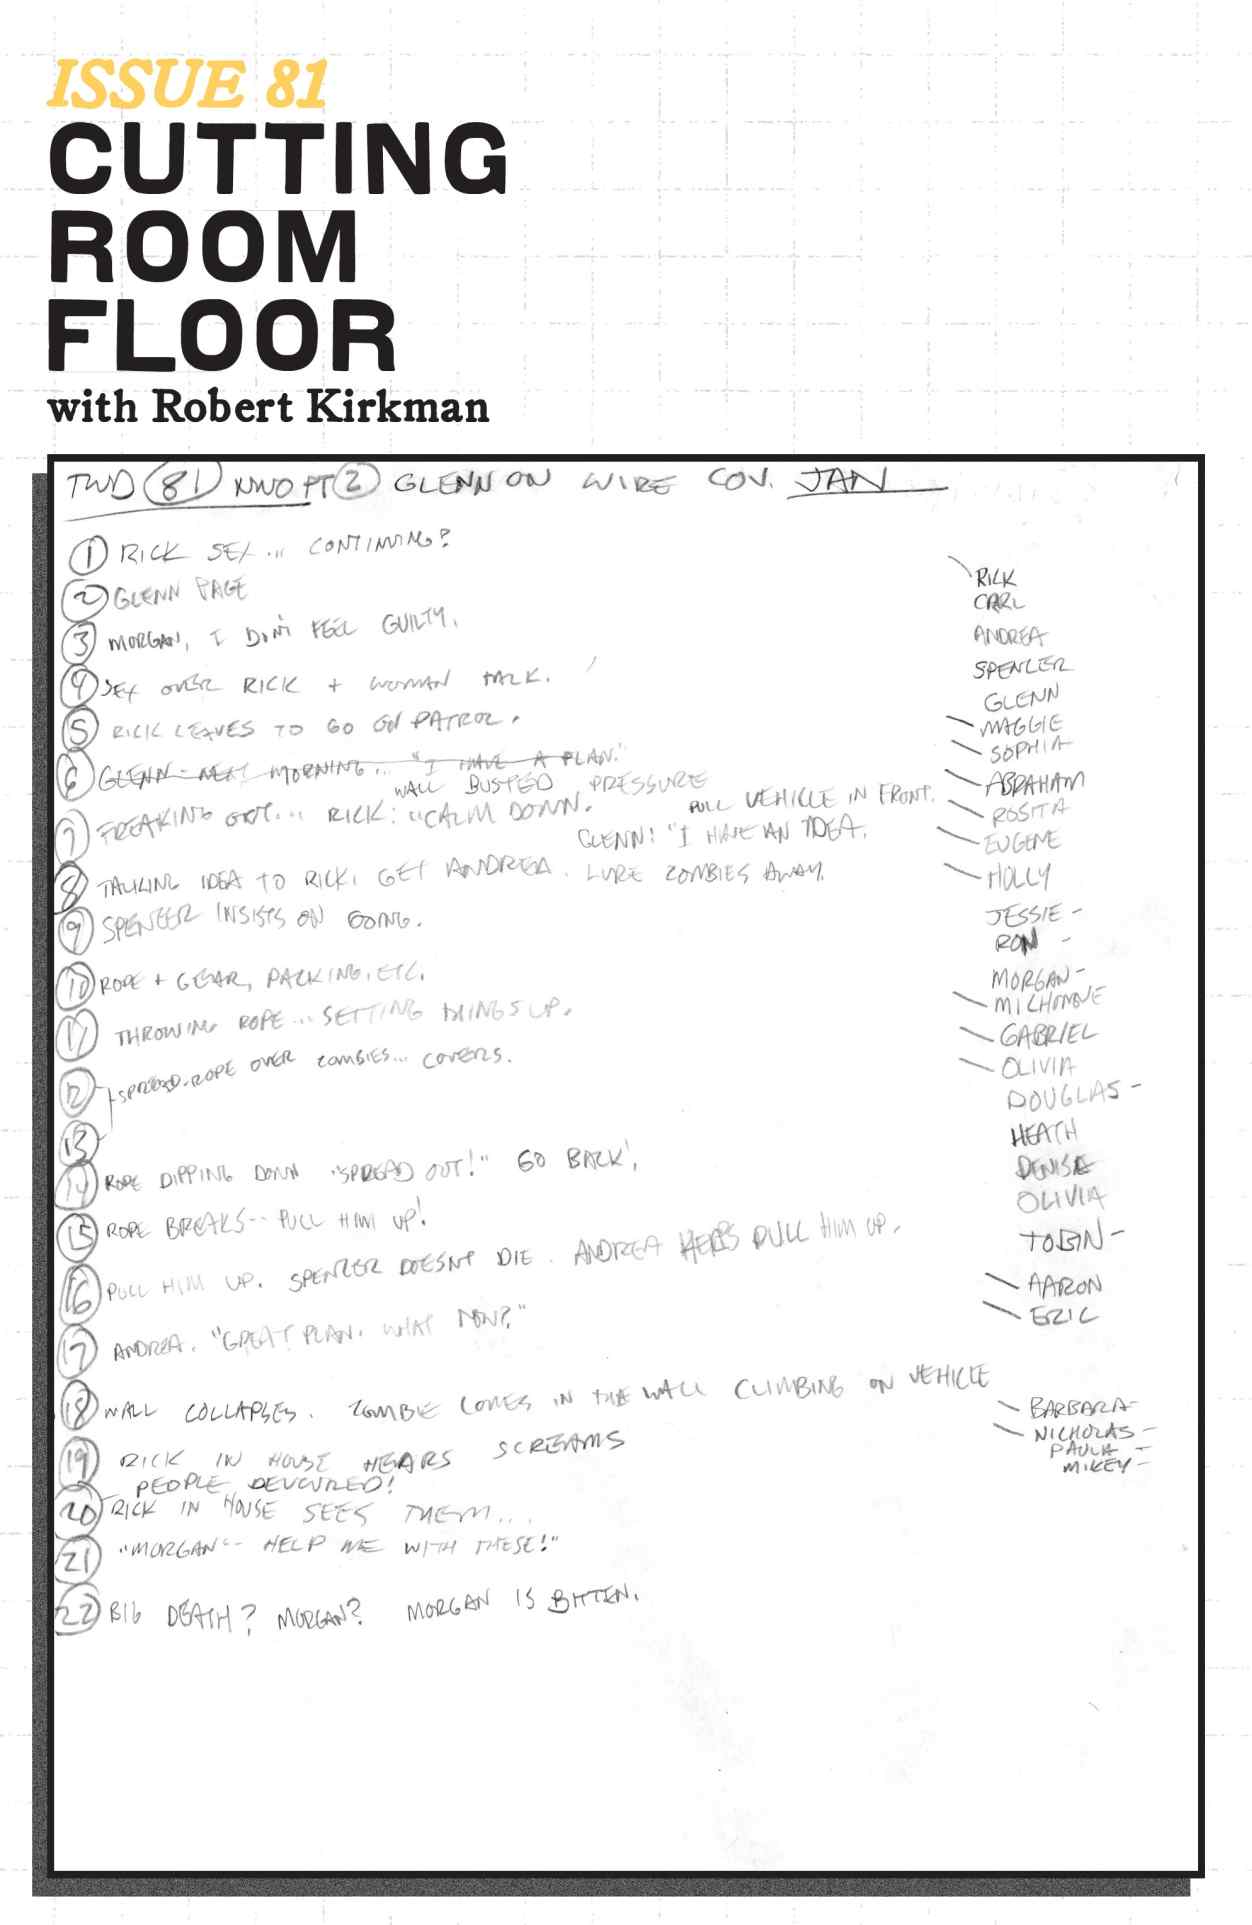 ISSUE 81
CUTTING
ROOM
FLOOR
with Robert Kirkman
TWD 81 NWO PT 2 GLENN ON WIRE COV. JAN
1 RICK SEX... CONTINUING?
2 GLENN PAGE
3 MORGAN, I DON'T FEEL GUILTY.
4 SEX OVER RICK + WOMAN TALK.
5 RICK LEAVES TO GO ON PATROL.
6 GLENN - NEXT MORNING... "I HAVE A PLAN."
WALL BUSTED PRESSURE
7 FREAKING OUT... RICK: "CALM DOWN.
PULL VEHICLE IN FRONT.
GLENN: "I HAVE AN IDEA.
8 TALKING IDEA TO RICK, GET ANDREA. LURE ZOMBIES AWAY.
9 SPENCER INSISTS ON GOING.
10 ROPE + GEAR, PACKING, ETC.
11 THROWING ROPE... SETTING THINGS UP.
12 SPREAD-ROPE OVER ZOMBIES... COVERS.
13
14 ROPE DIPPING DOWN "SPREAD OUT!" GO BACK!
15 ROPE BREAKS-- PULL HIM UP!
16 PULL HIM UP. SPENCER DOESN'T DIE. ANDREA HELPS PULL HIM UP.
17 ANDREA. "GREAT PLAN. WHAT NOW?"
18 WALL COLLAPSES. ZOMBIE COMES IN THE WALL CLIMBING ON VEHICLE
19 RICK IN HOUSE HEARS SCREAMS
PEOPLE DEVOURED!
20 RICK IN HOUSE SEES THEM...
21 "MORGAN-- HELP ME WITH THESE!"
22 BIG DEATH? MORGAN? MORGAN IS BITTEN.
RICK
CARL
ANDREA
SPENCER
GLENN
MAGGIE
SOPHIA
ABRAHAM
ROSITA
EUGENE
HOLLY
JESSIE -
RON -
MORGAN -
MICHONNE
GABRIEL
OLIVIA
DOUGLAS -
HEATH
DENISE
OLIVIA
TOBIN -
AARON
ERIC
BARBARA -
NICHOLAS -
PAULA -
MIKEY -